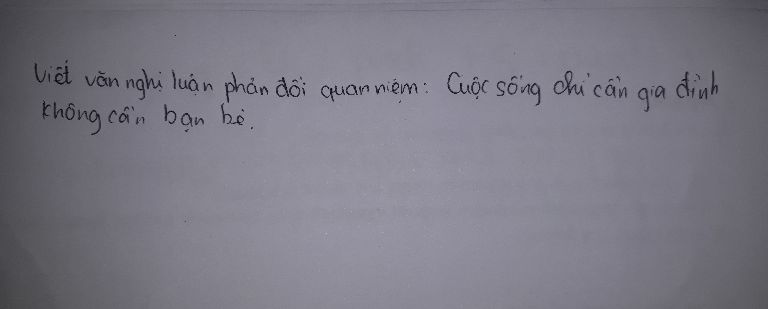 Viết văn nghị luận phản đối quan niệm: Cuộc sống chỉ cần gia đình
không cần bạn bè.